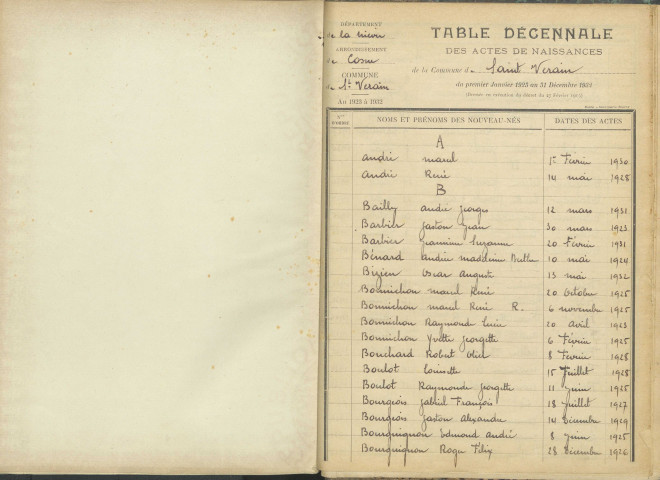 DÉPARTEMENT
de la Nièvre
ARRONDISSEMENT
de Cosne
COMMUNE
de St Verain
An 1923 à 1932
TABLE DÉCENNALE
DES ACTES DE NAISSANCES
de la Commune de Saint Verain
du premier Janvier 1923 au 31 Décembre 1932
Nos D'ORDRE NOMS ET PRÉNOMS DES NOUVEAU-NÉS DATES DES ACTES
A
André Marcel 1er Février 1930
André René 14 mai 1928
B
Bailly André Georges 12 mars 1931
Barbier Gaston Jean 30 mars 1923
Barbier Jeannine Suzanne 20 Février 1931
Bénard Andrée Madeleine 10 mai 1924
Bizien Oscar Auguste 13 mai 1932
Bonnichon Marcel René 20 Octobre 1925
Bonnichon Marcel René R. 6 novembre 1925
Bonnichon Raymonde Lucie 20 Avril 1923
Bonnichon Yvette Georgette 6 Février 1925
Bouchard Robert 8 Février 1928
Boulot Louisette 15 Juillet 1928
Boulot Raymonde Georgette 11 Juin 1925
Bourgeois Gabriel François 18 Juillet 1927
Bourgeois Gaston Alexandre 14 Décembre 1929
Bourguignon Edmond André 8 Juin 1925
Bourguignon Roger Félix 28 Décembre 1926